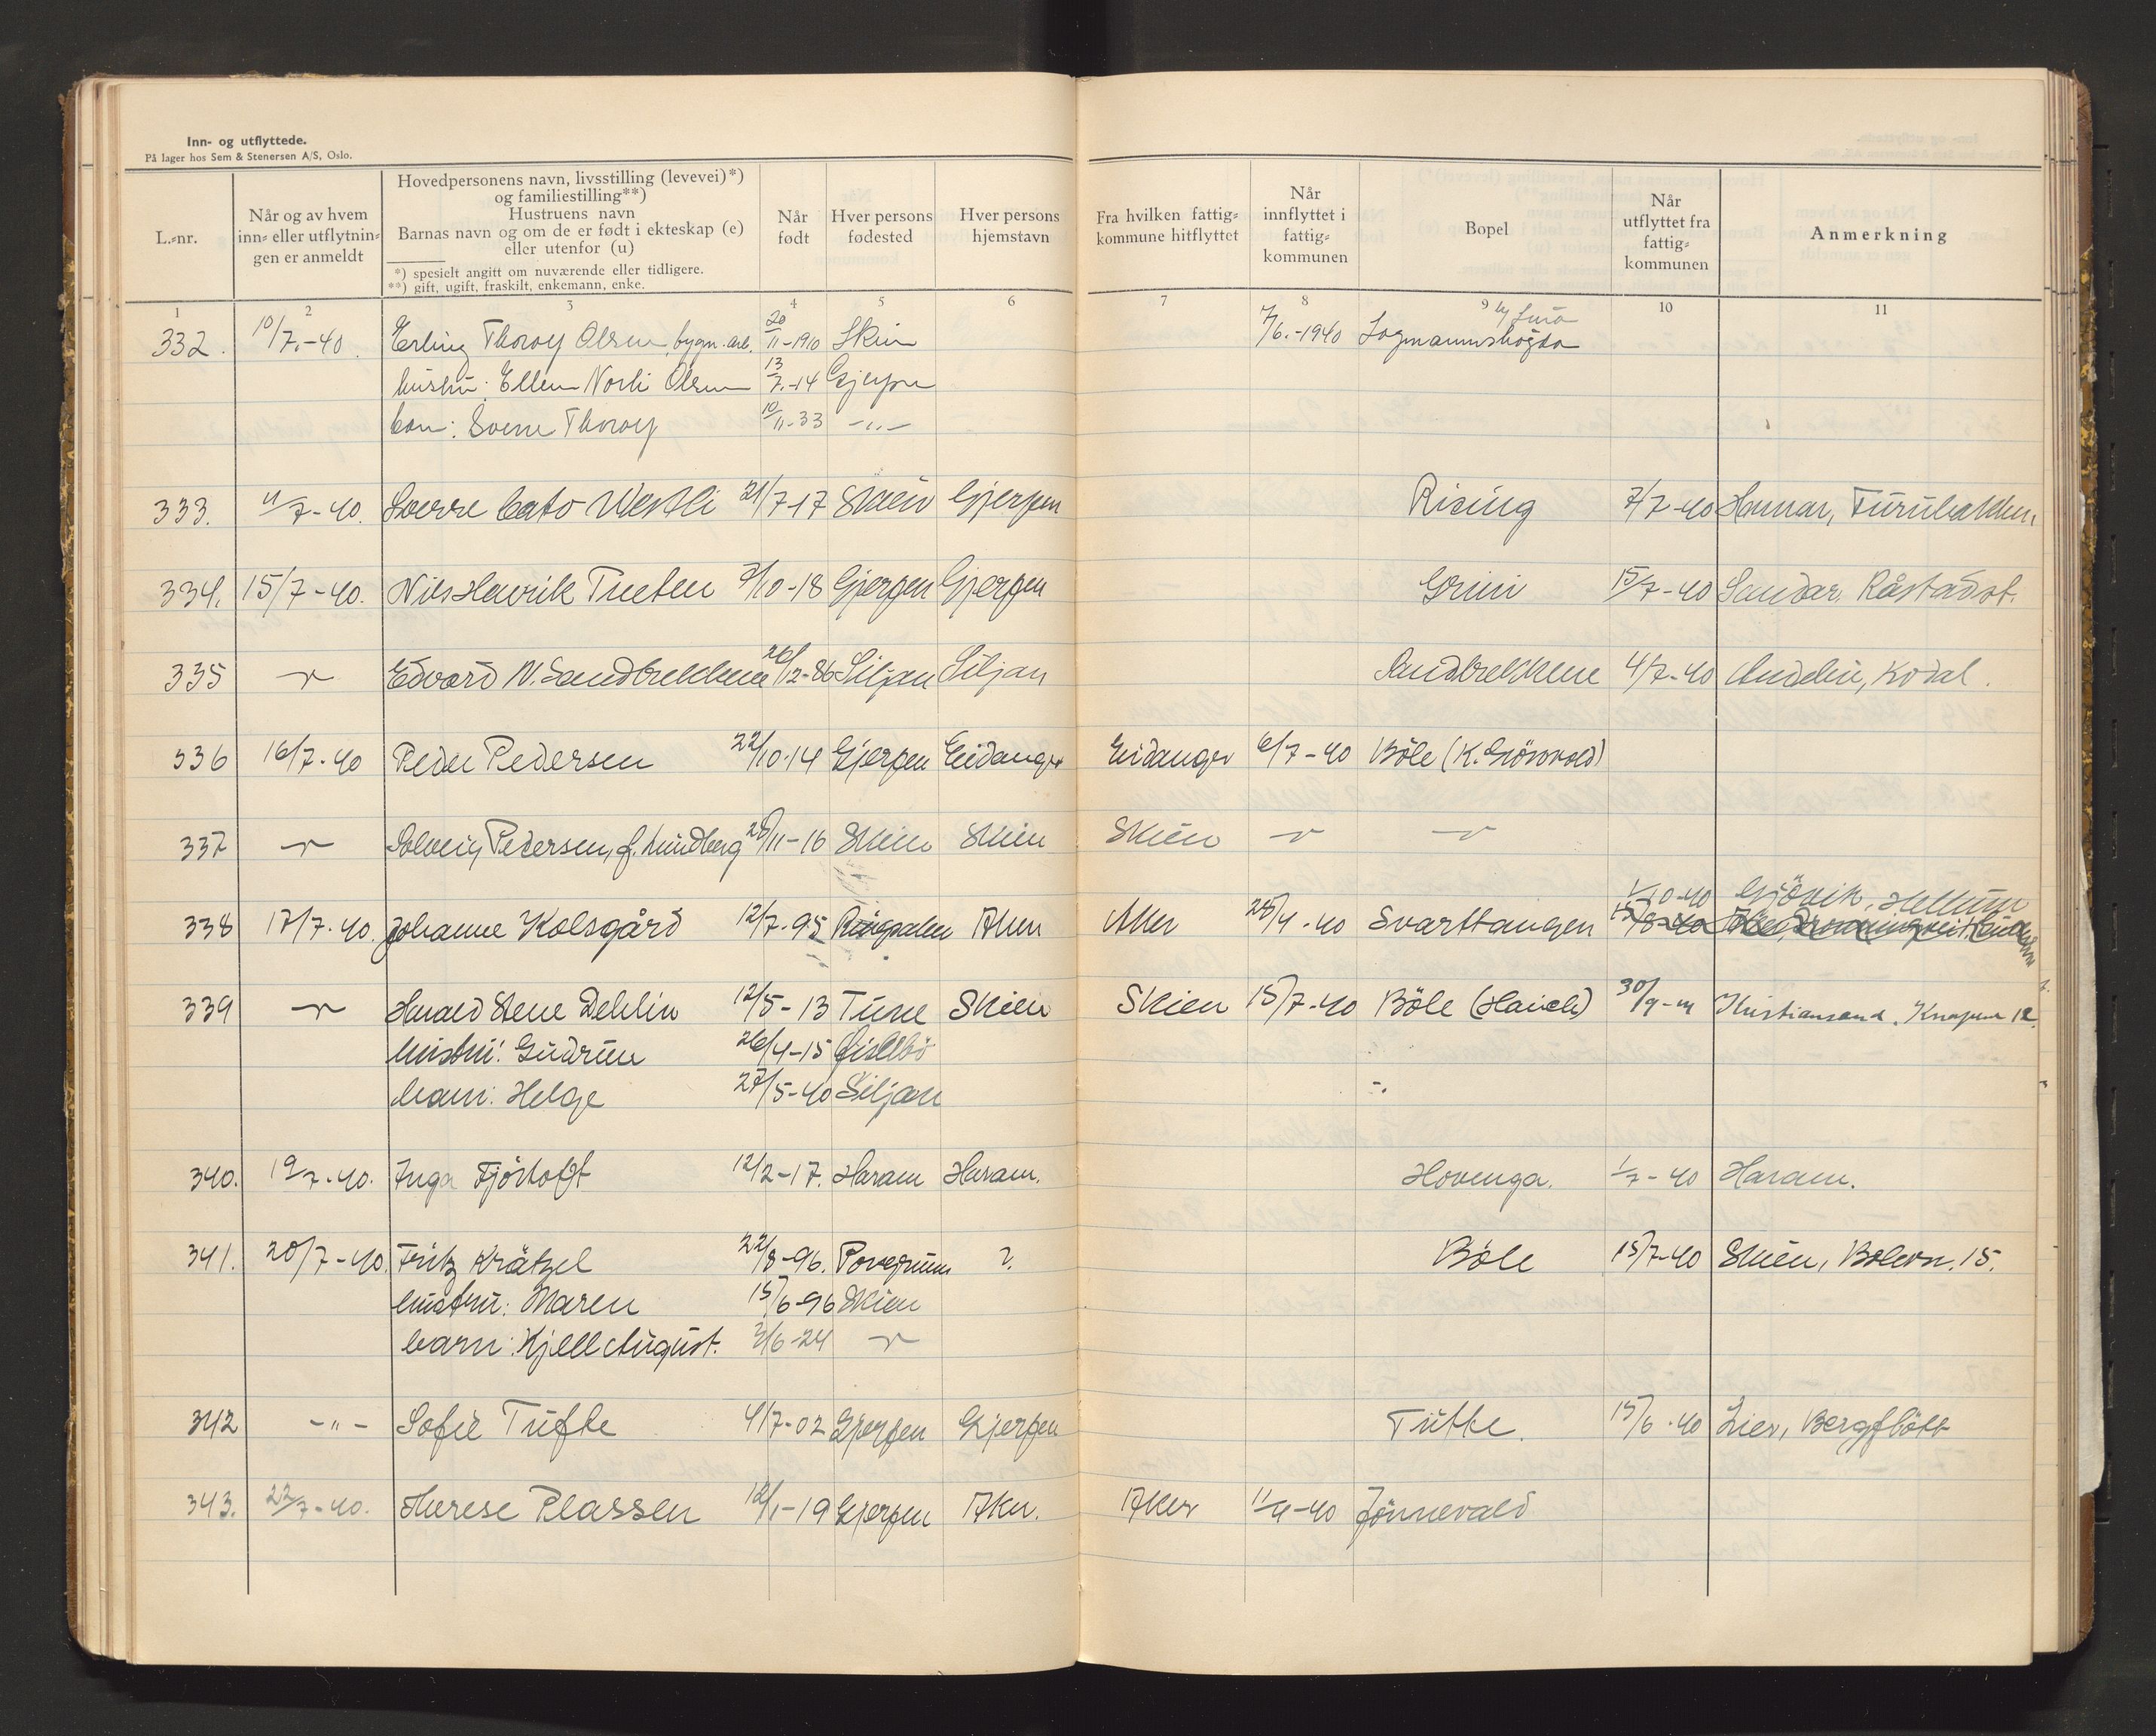 Inn- og utflyttede.
På lager hos Sem & Stenersen A/S, Oslo.
L.-nr.
Når og av hvem
inn- eller utflytnin-
gen er anmeldt
Hovedpersonens navn, livsstilling (levevei)*)
og familiestilling**)
Hustruens navn
Barnas navn og om de er født i ekteskap (e)
eller utenfor (u)
*) spesielt angitt om nuværende eller tidligere.
**) gift, ugift, fraskilt, enkemann, enke.
Når
født
Hver persons
fødested
Hver persons
hjemstavn
Fra hvilken fattig-
kommune hitflyttet
Når
innflyttet i
fattig-
kommunen
Bopel
Når
utflyttet fra
fattig-
kommunen
Anmerkning
1 2 3 4 5 6 7 8 9 10 11
332. 10/7.-40. Erling Thoroy Olsen, bygn. arb. 20/11-1910 Skien 7/6.-1940 Lagmannshögda
hustru: Ellen Norli Olsen 13/7.-14 Gjerpen
barn: Sverre Thoroy 10/11-33 -"-
333. 11/7-40. Sverre Cato Westli 21/7-17 Skien Gjerpen Rising 7/7-40 Hamar, Furubakken
334. 15/7-40. Nils Henrik Tveten 3/10-18 Gjerpen Gjerpen Grini 15/7-40 Sandar, Råstadst.
335 -"- Edvard N. Sandbekkene 26/12-86 Siljan Siljan Sandbekkene 4/7-40 Andebu, Kodal.
336 16/7-40 Peder Pedersen 22/10-14 Gjerpen Eidanger Eidanger 6/7-40 Böle (K. Grönvold)
337 -"- Solveig Pedersen, f. Lundberg 28/11-16 Skien Skien Skien -"- -"-
338 17/7-40. Johanne Kolsgård 12/7-95 Aker Aker 28/4-40 Svarttangen 1/10-40 Gjövik, Hellum
15/8-40
339 -"- Harald Stene Dehlin 12/5-13 Tune Skien Skien 15/7-40 Böle (Hauch) 30/9-41 Kristiansand. 12.
hustru: Gudrun 26/4-15
barn: Helge 27/5-40 Siljan
340. 19/7-40. Inga Fjörtoft 12/2-17. Haram Haram. Hovenga. 1/7-40 Haram.
341. 20/7-40. Fritz Krätzel 22/8-96. Porsgrunn ?. Böle 15/7-40 Skien, Bolevn. 15.
hustru: Maren 15/6-96 Skien
barn: Kjell August. 3/6-24 -"-
342 -"- Sofie Tufte 4/7-02 Gjerpen Gjerpen Tufte. 15/6-40 Lier, Bergflödt
343. 22/7-40. Therese Plassen 12/1-19 Gjerpen Aker. Aker 11/4-40 Jönnevald